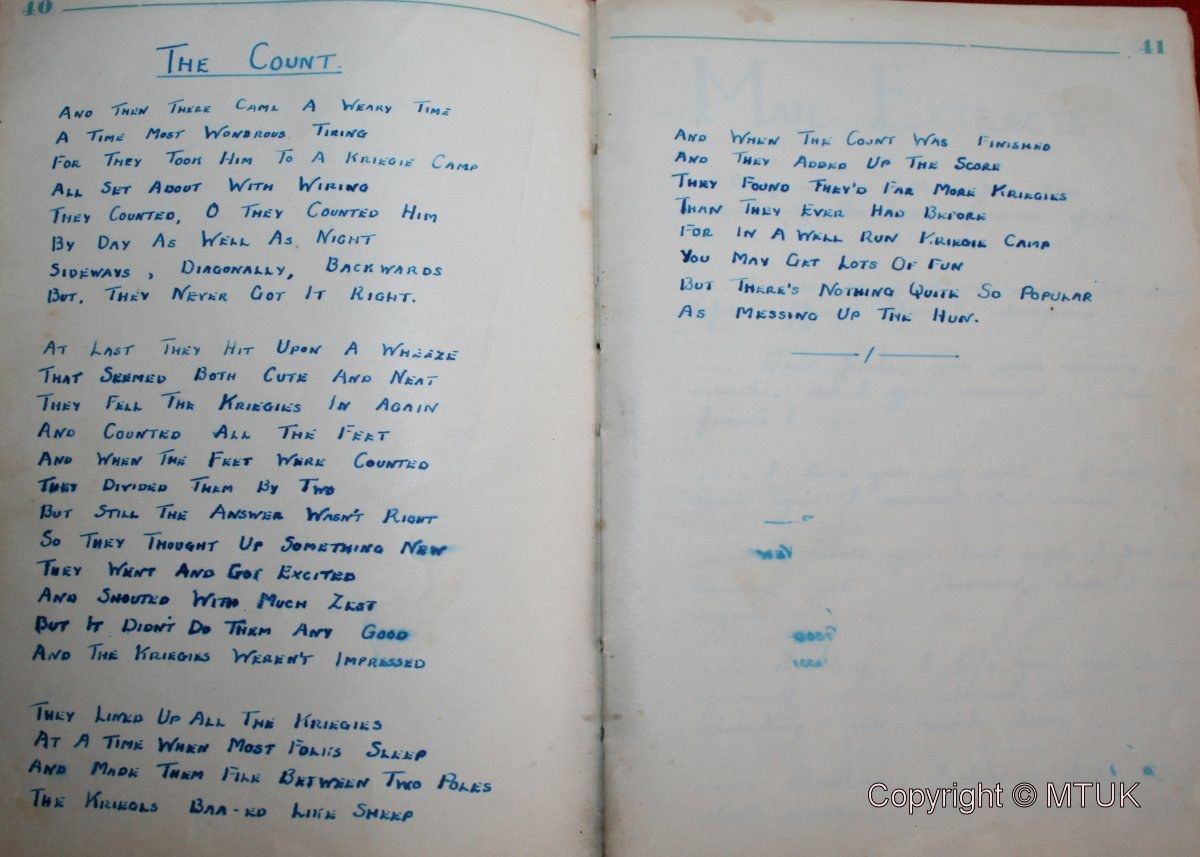 40
THE COUNT.
AND THEN THERE CAME A WEARY TIME
A TIME MOST WONDROUS TIRING
FOR THEY TOOK HIM TO A KRIEGIE CAMP
ALL SET ABOUT WITH WIRING
THEY COUNTED, O THEY COUNTED HIM
BY DAY AS WELL AS NIGHT
SIDEWAYS, DIAGONALLY, BACKWARDS
BUT, THEY NEVER GOT IT RIGHT.
AT LAST THEY HIT UPON A WHEEZE
THAT SEEMED BOTH CUTE AND NEAT
THEY FELL THE KRIEGIES IN AGAIN
AND COUNTED ALL THE FEET
AND WHEN THE FEET WERE COUNTED
THEY DIVIDED THEM BY TWO
BUT STILL THE ANSWER WASN'T RIGHT
SO THEY THOUGHT UP SOMETHING NEW
THEY WENT AND GOT EXCITED
AND SHOUTED WITH MUCH ZEST
BUT IT DIDN'T DO THEM ANY GOOD
AND THE KRIEGIES WEREN'T IMPRESSED
THEY LINED UP ALL THE KRIEGIES
AT A TIME WHEN MOST FOLKS SLEEP
AND MADE THEM FILE BETWEEN TWO POLES
THE KRIEGIES BAA-ED LIKE SHEEP
41
AND WHEN THE COUNT WAS FINISHED
AND THEY ADDED UP THE SCORE
THEY FOUND THEY'D FAR MORE KRIEGIES
THAN THEY EVER HAD BEFORE
FOR IN A WELL RUN KRIEGIE CAMP
YOU MAY GET LOTS OF FUN
BUT THERE'S NOTHING QUITE SO POPULAR
AS MESSING UP THE HUN.
Copyright © MTUK